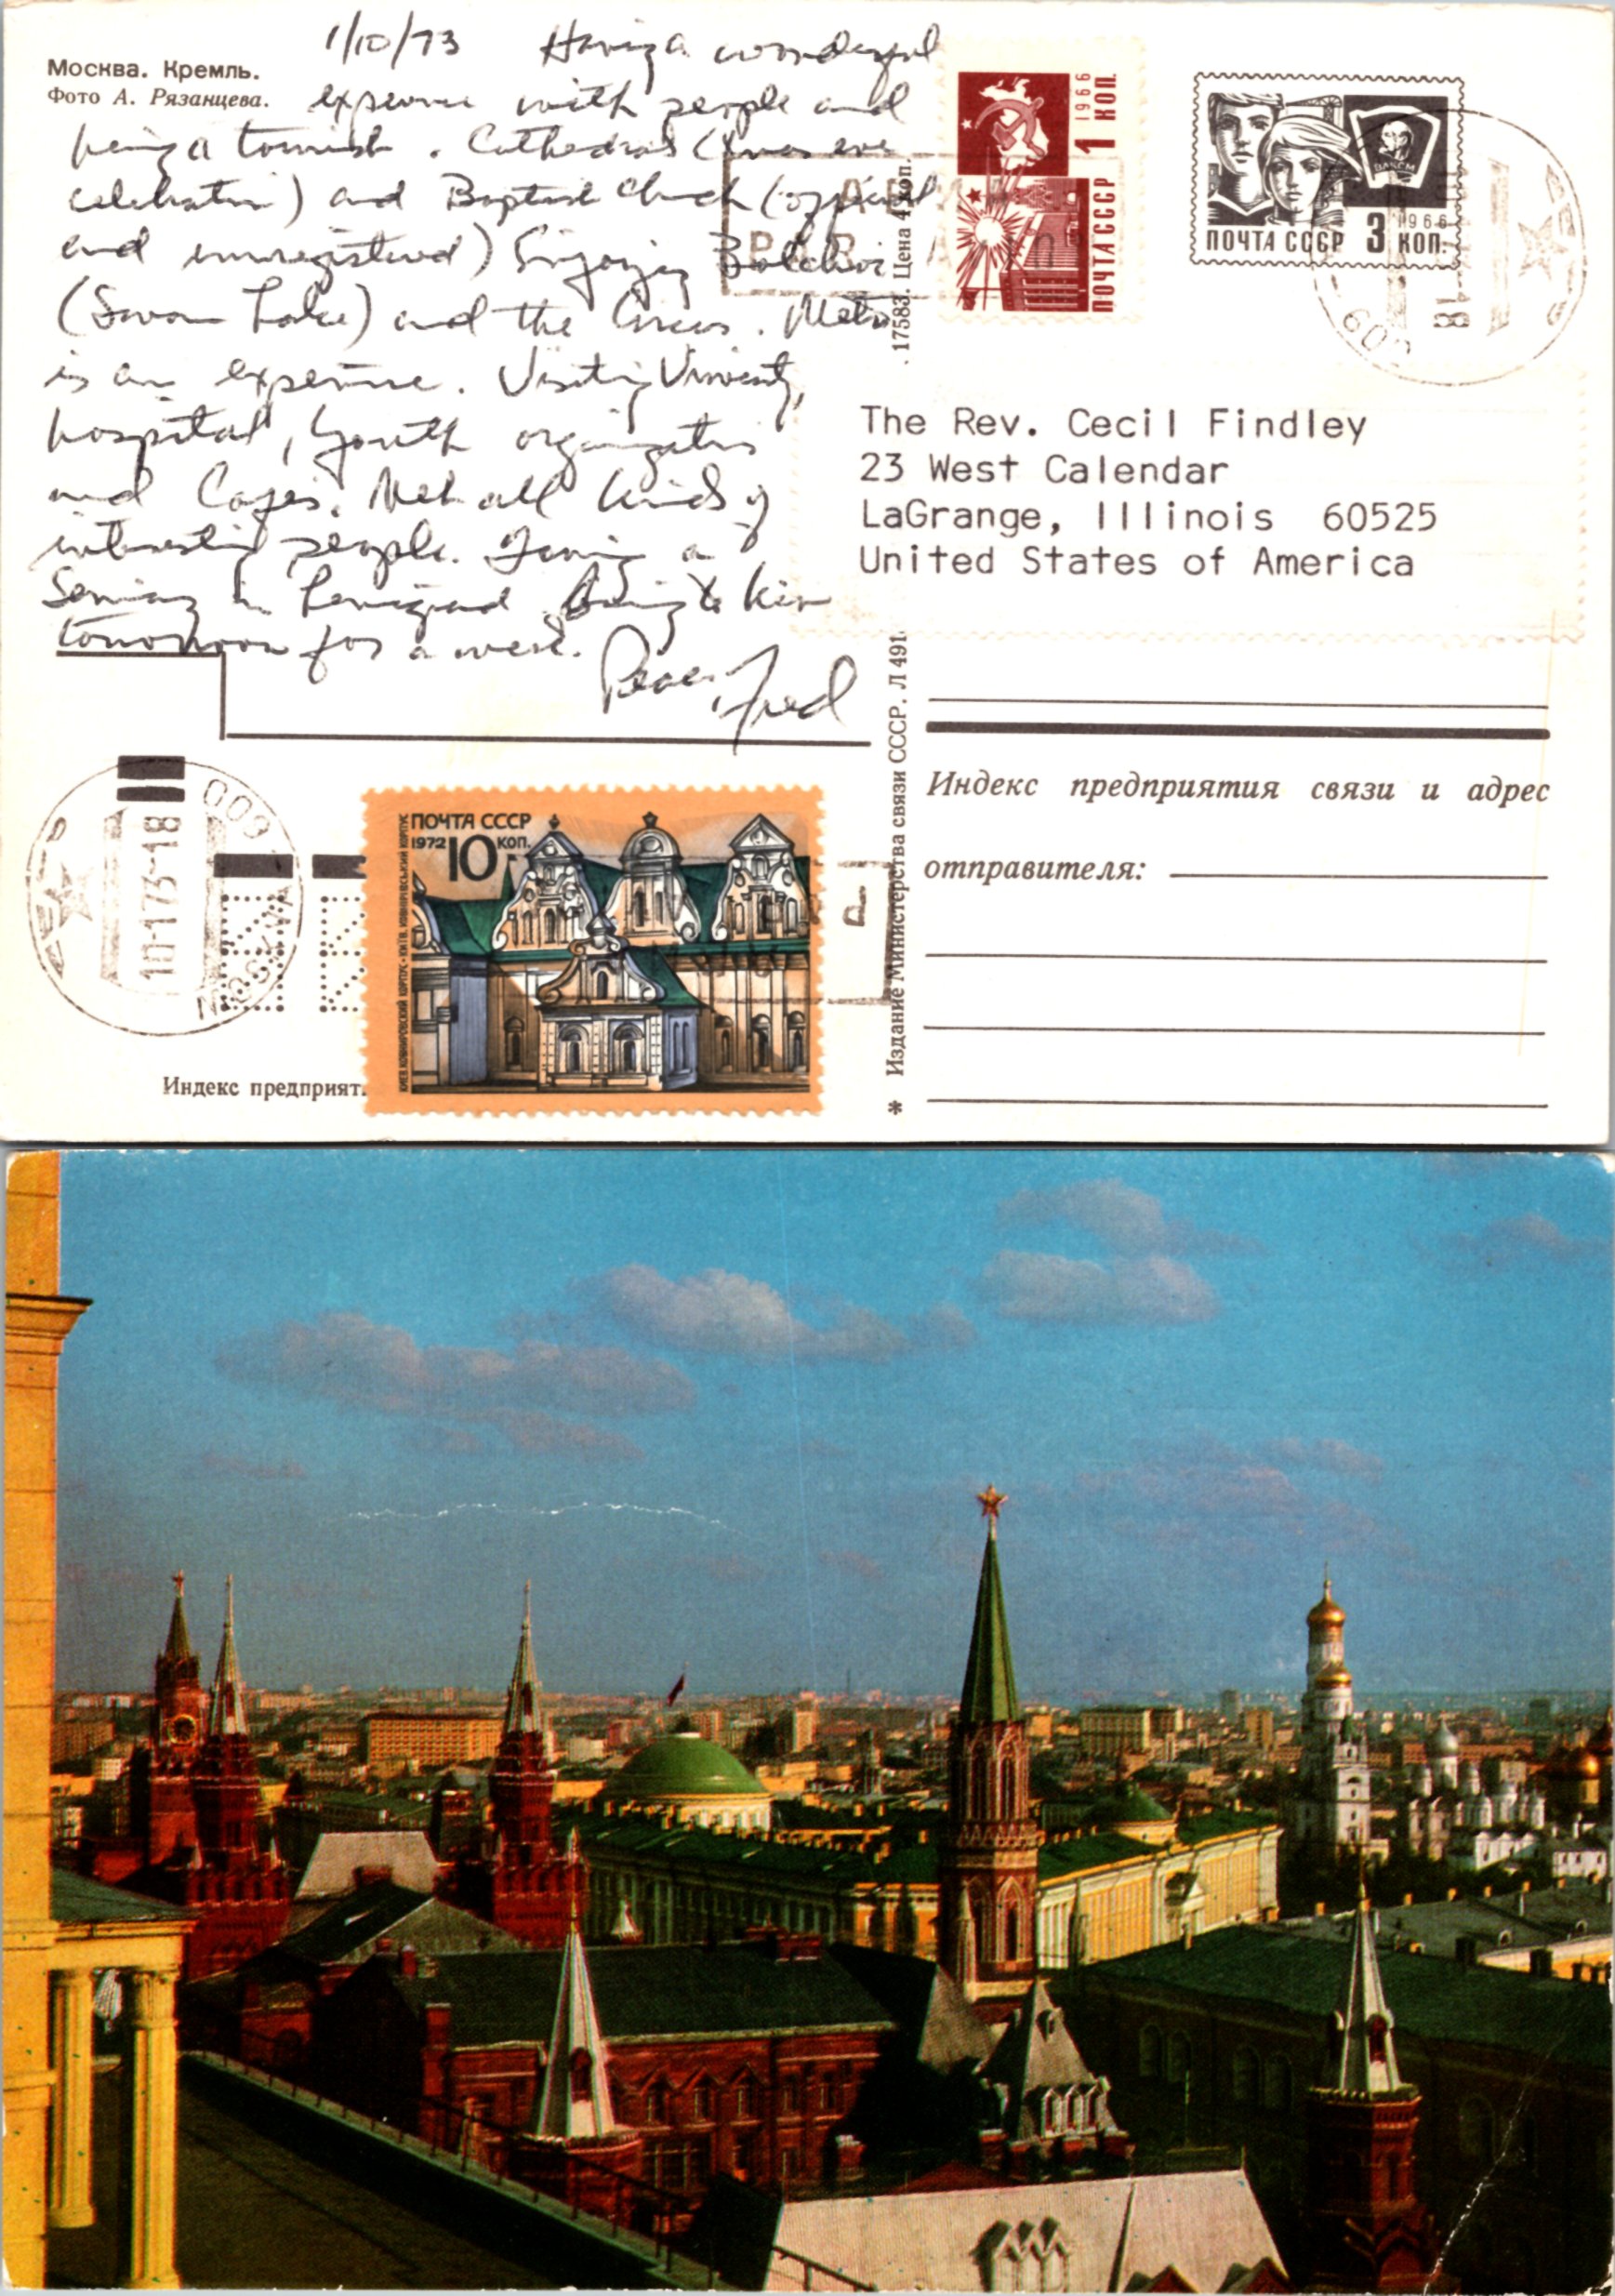 Москва. Кремль.
Фото А. Рязанцева.
1/10/73 Having a wonderful
experience with people and
being a tourist. Cathedral (Xmas eve
celebration) and Baptist Church (official
and unregistered) Enjoying Bolshoi
(Swan Lake) and the Circus. Metro
is an experience. Visiting University,
hospital, youth organization
and Cafes. Met all kinds of
interesting people. a
in Leningrad to Kiev
tomorrow for a week.
Peace, Fred
1966
1 КОП.
ПОЧТА СССР
ВЛКСМ
1966
ПОЧТА СССР 3 КОП.
PAR AVION
-18
009
The Rev. Cecil Findley
23 West Calendar
LaGrange, Illinois 60525
United States of America
17583. Цена 4 коп.
* Издание Министерства связи СССР. Л 491
Индекс предприятия связи и адрес
отправителя:
009
10-1 73-18
MOSKVA
ПОЧТА СССР
1972 10 КОП.
КИЕВ. КОВНИРОВСКИЙ КОРПУС • КИЇВ. КОВНІРІВСЬКИЙ КОРПУС
Индекс предприят